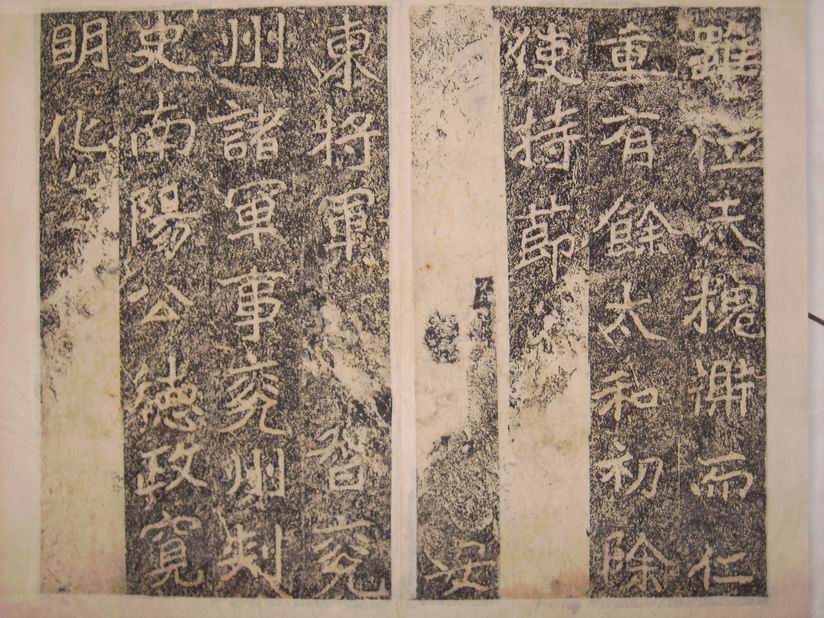 雖位未槐鼎而仁
重有餘太和初除
使持節
安
東將軍督兖
州諸軍事兖州刺
史南陽公德政寬
明化